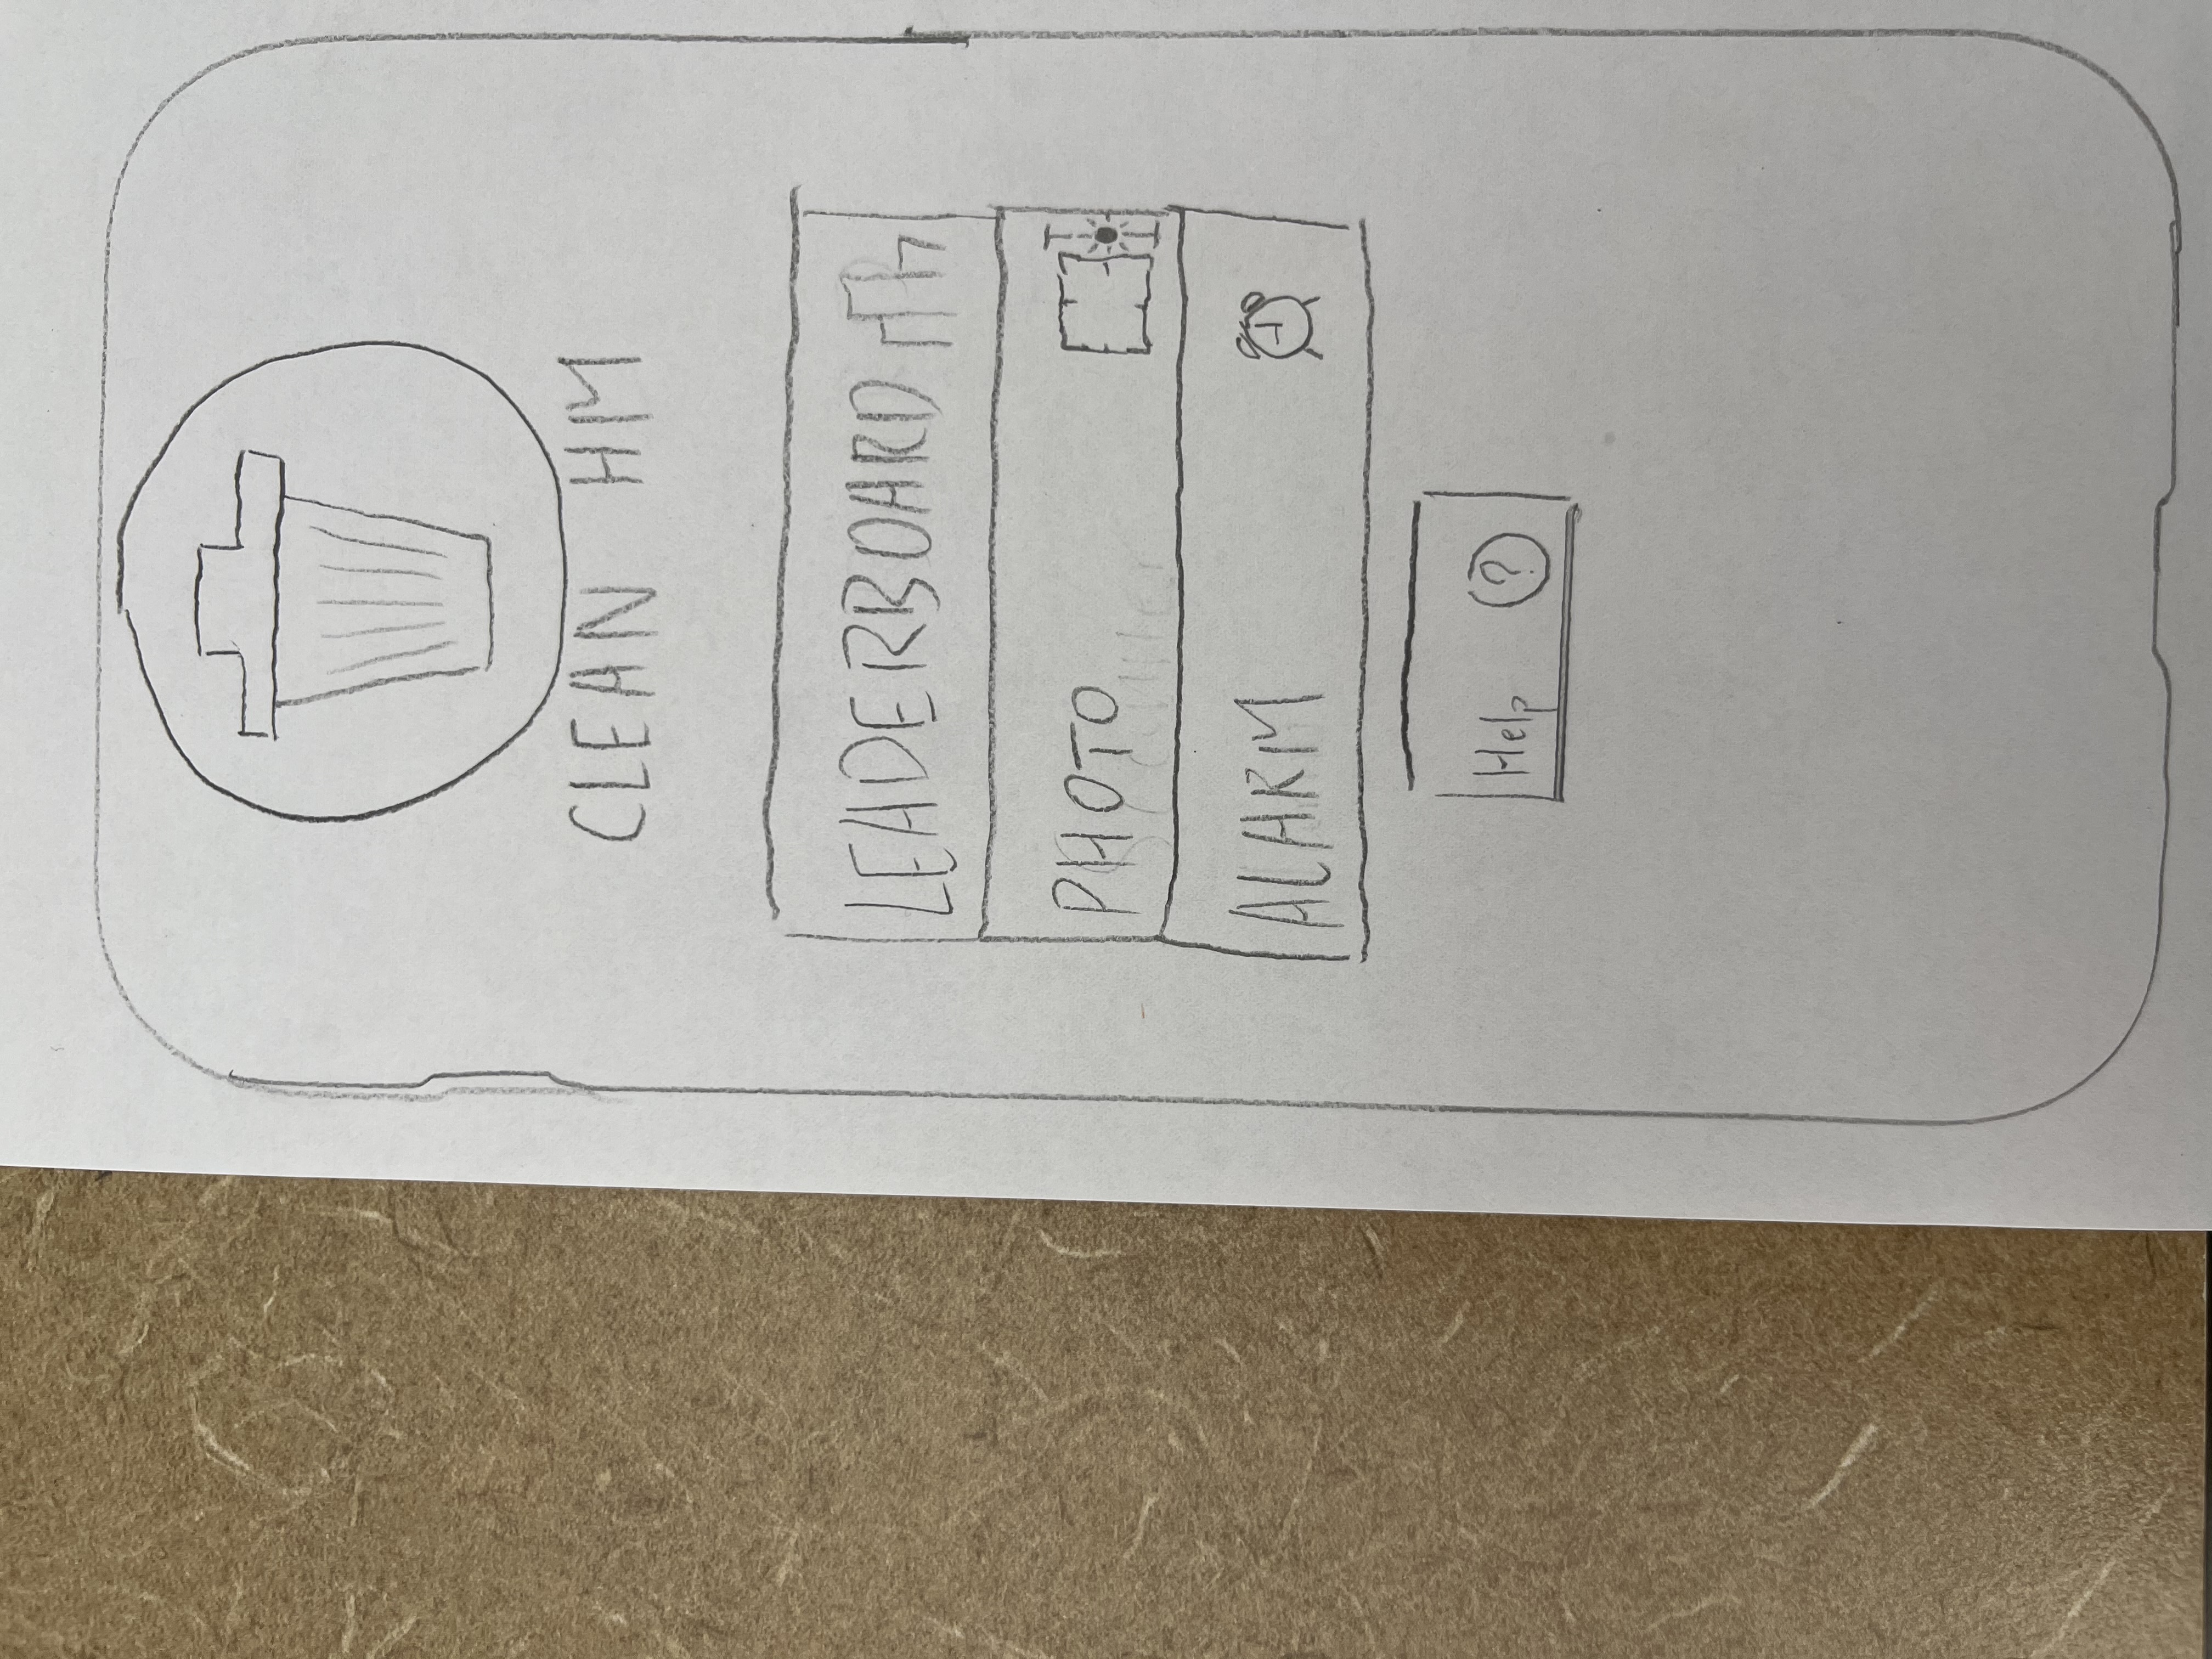 CLEAN HM
LEADERBOARD
PHOTO
ALARM
Help ?